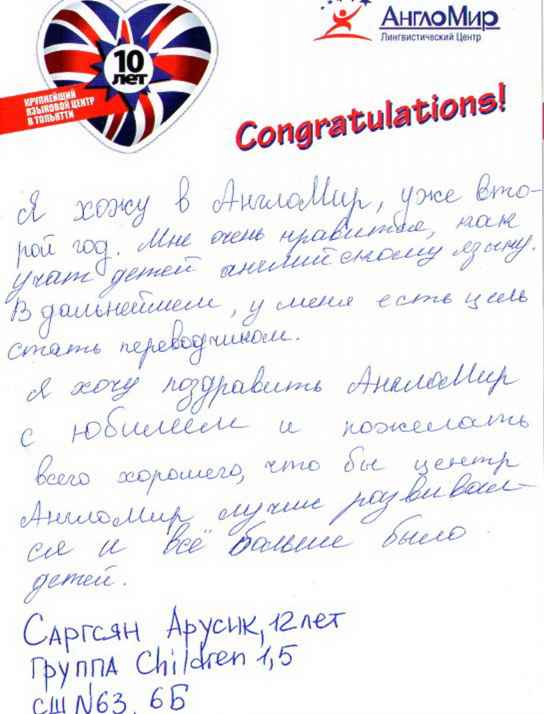 10
лет
КРУПНЕЙШИЙ
ЯЗЫКОВОЙ ЦЕНТР
В ТОЛЬЯТТИ
АнглоМир
Лингвистический Центр
Congratulations!
Я хожу в АнглоМир, уже вто-
рой год. Мне очень нравится, как
учат детей английскому языку.
В дальнейшем, у меня есть цель
стать переводчиком.
Я хочу поздравить АнглоМир
с юбилеем и пожелать
всего хорошего, что бы центр
АнглоМир лучше развивал-
ся и всё больше было
детей.
Саргсян Арусик, 12 лет
Группа Children 1,5
СШ №63, 6Б